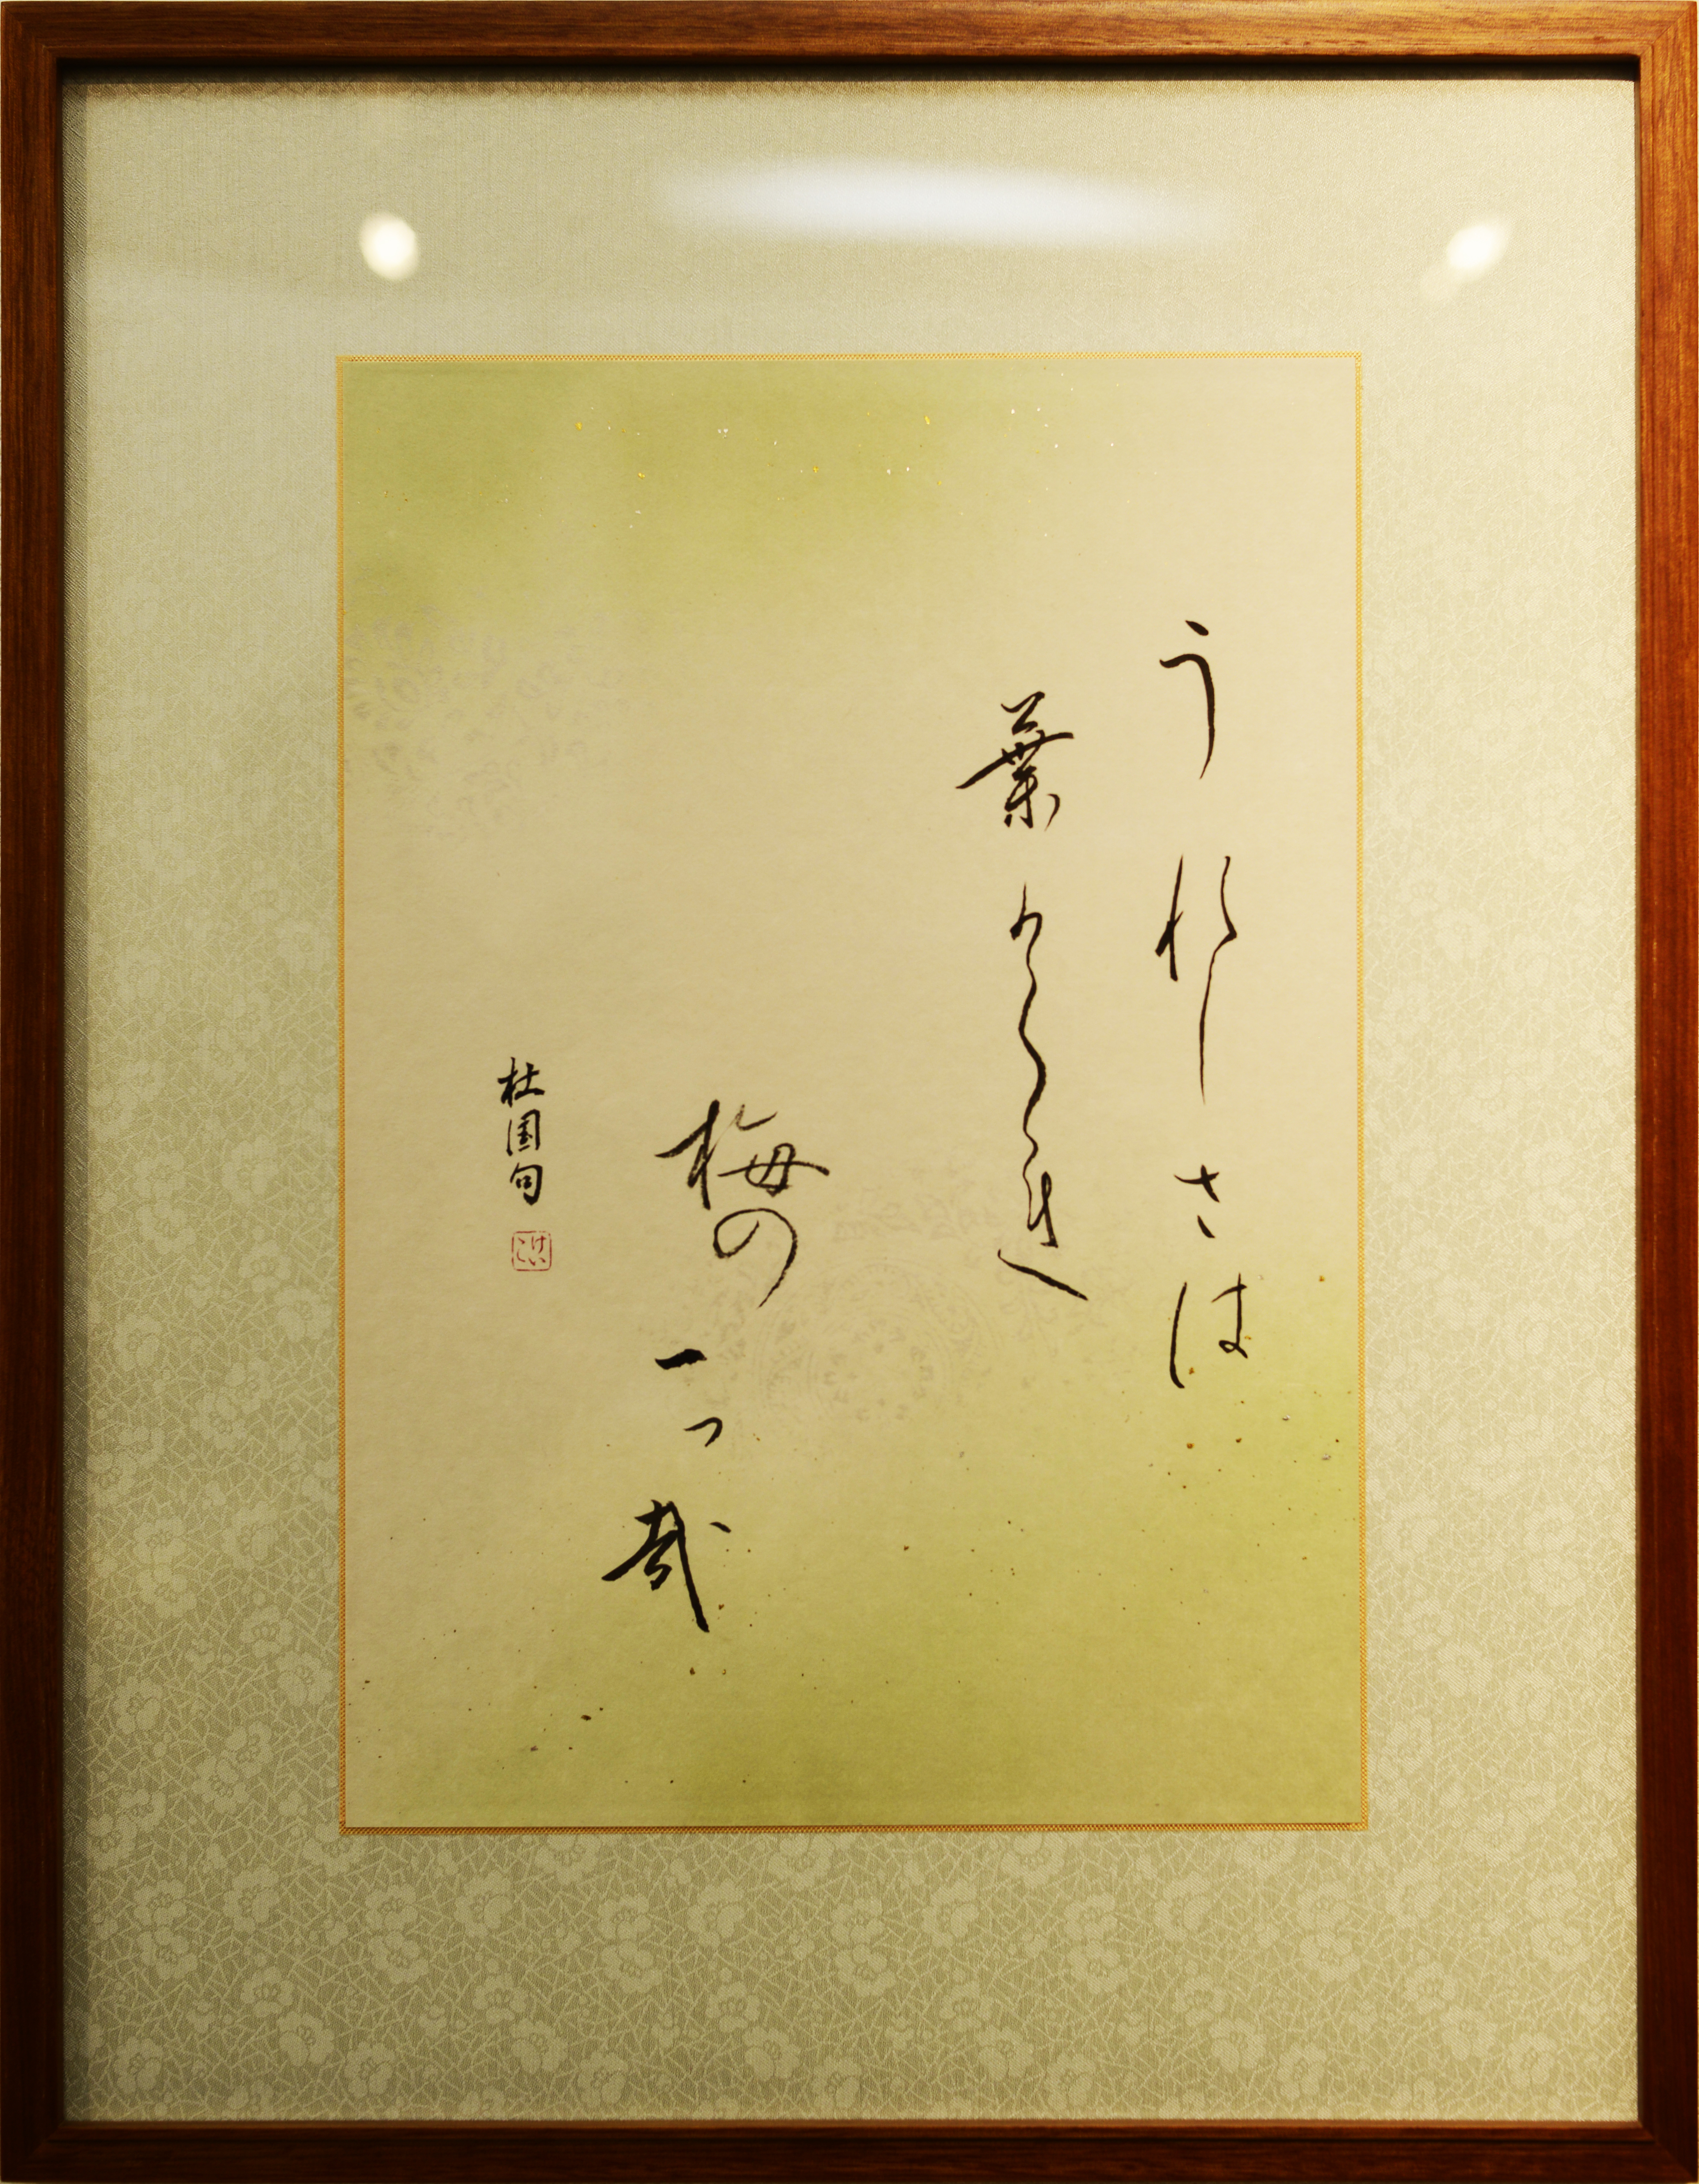 うれしさは
葉かくれ
梅の
一つ哉
杜国句
けいこ